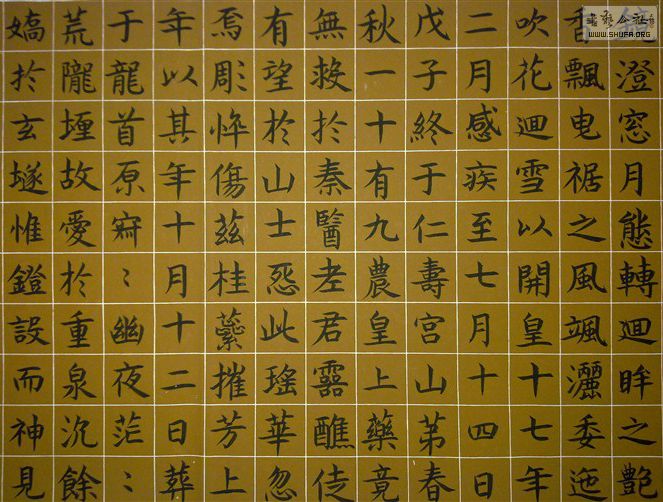 澄窓月態轉迴眸之艷
飄电裾之風颯灑委迤
吹花迴雪以開皇十七年
二月感疾至七月十四日
戊子終于仁壽宮山苐春
秋一十有九農皇上藥竟
無救於秦醫老君靈醮徒
有望於山士怨此瑤華忽
焉彫悴傷茲桂蘂摧芳上
年以其年十月十二日葬
于龍首原寂〻幽夜茫〻
荒隴埋故愛於重泉沉餘
嬌於玄墜惟鐙設而神見
書藝公社
WWW.SHUFA.ORG